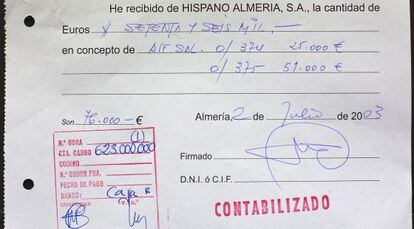 He recibido de HISPANO ALMERIA, S.A., la cantidad de
Euros SETENTA Y SEIS MIL.—
en concepto de O/ 374 25.000 €
O/ 375 51.000 €
Son 76.000-€ Almería, 2 de Julio de 2003
Nº OBRA (1)
CTA. CARGO 623.000000
CODIGO
Nº ORDEN FRA.
FECHA DE PAGO
BANCO: Caja B
Firmado
D.N.I. ó C.I.F.
CONTABILIZADO